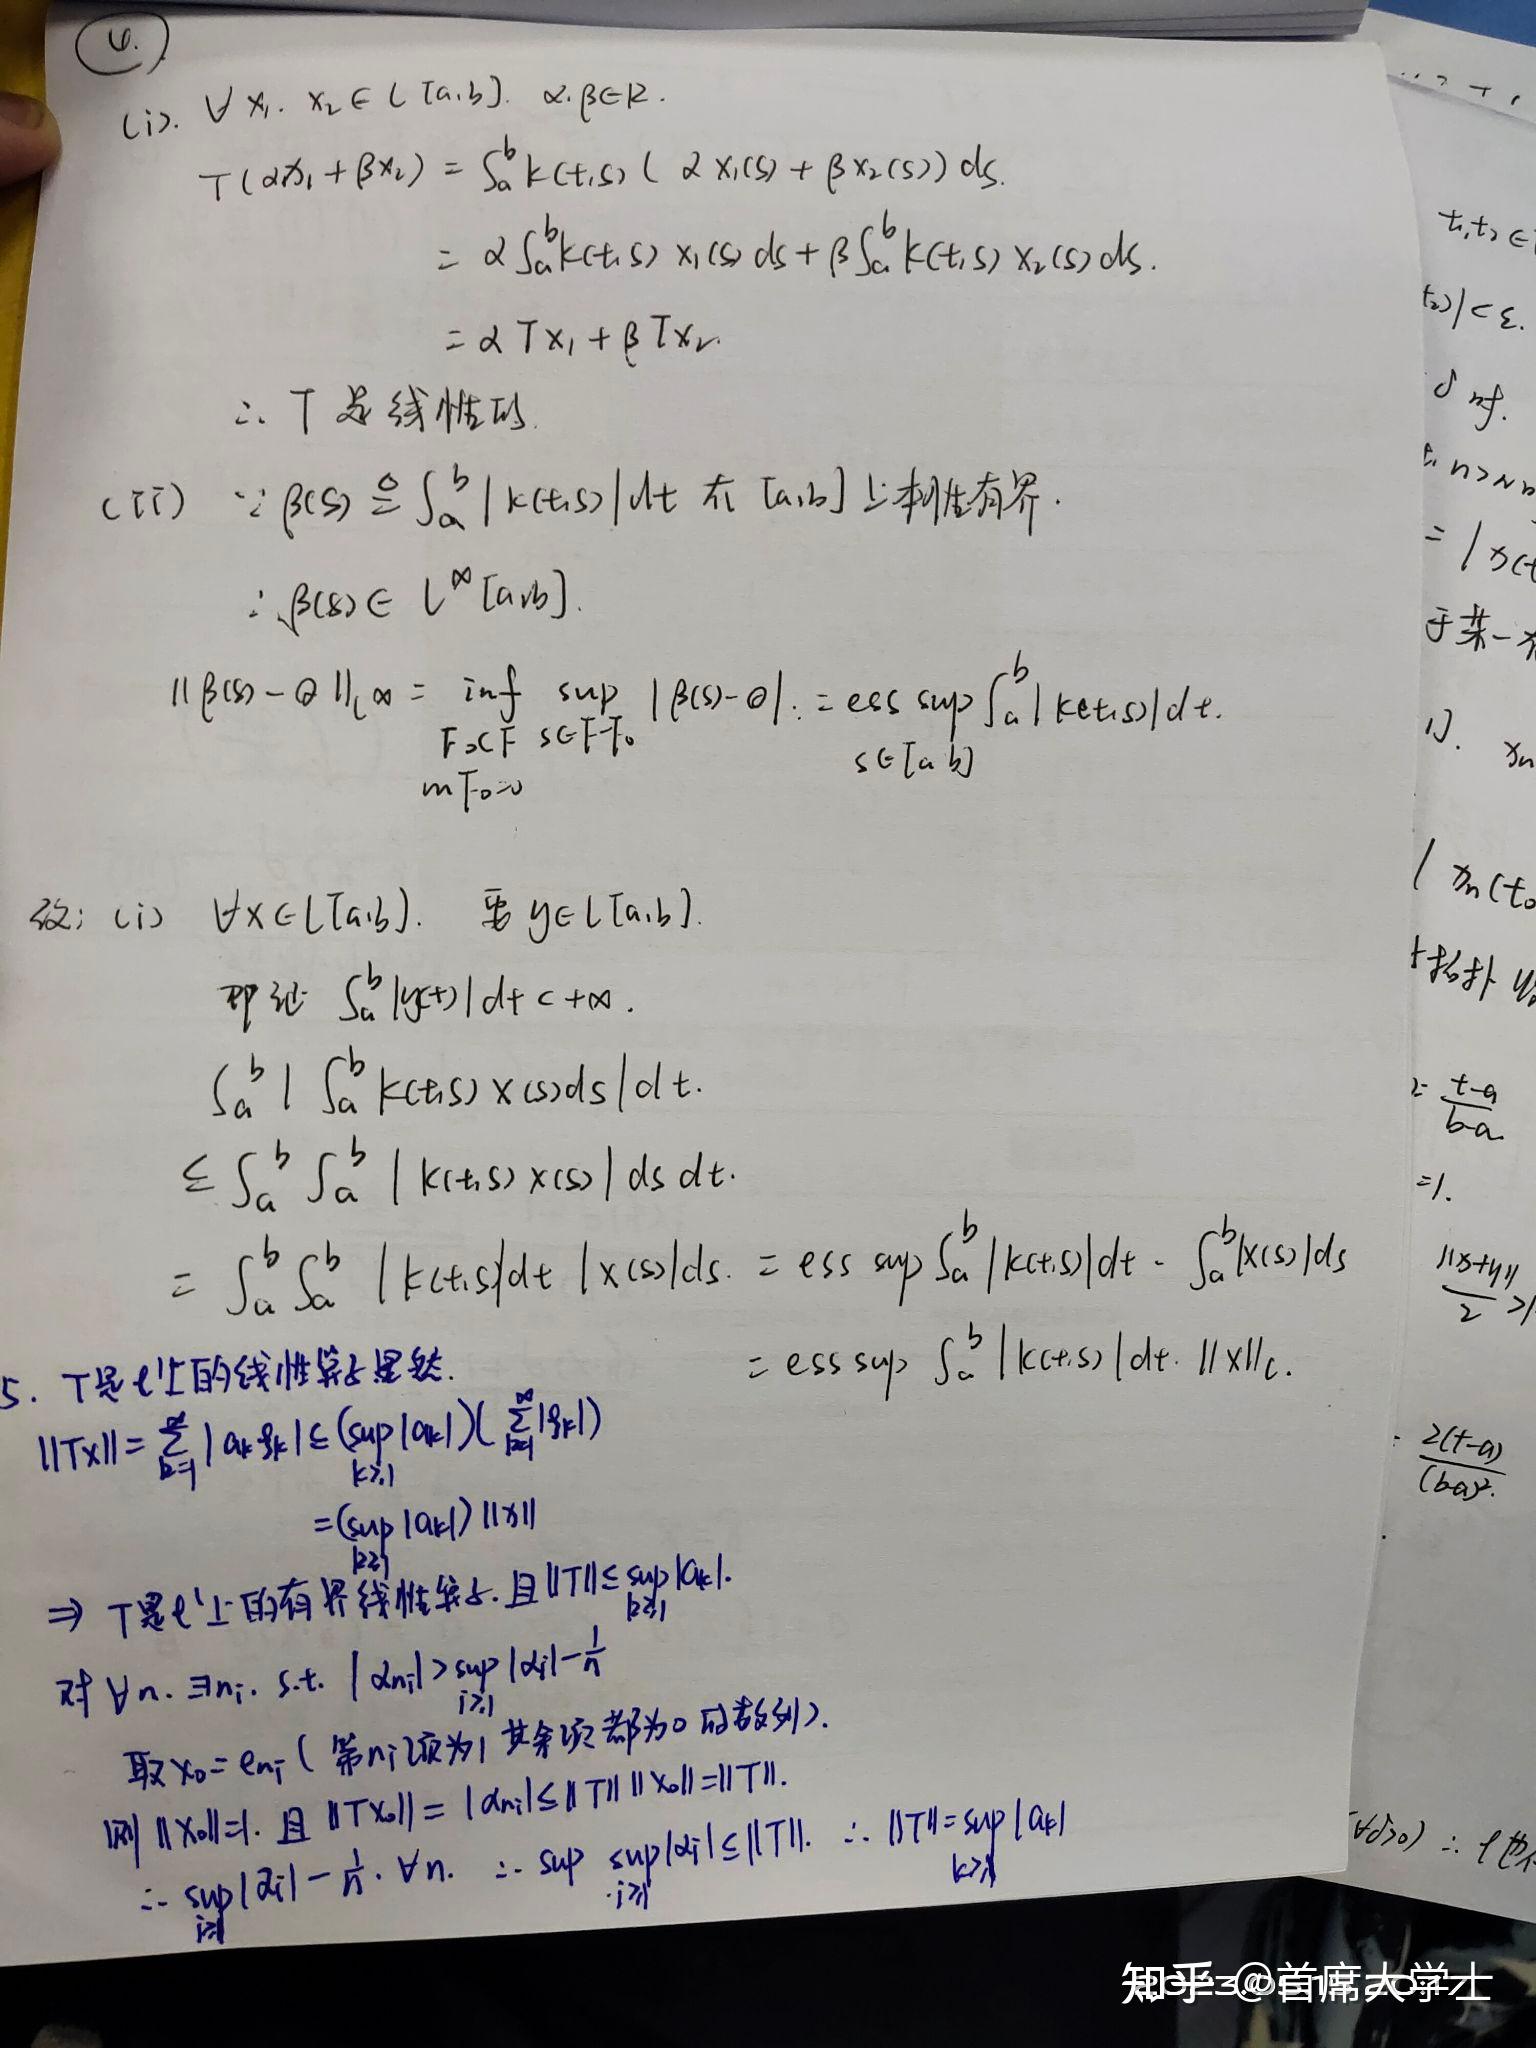 4.
(i). ∀ x₁, x₂ ∈ L[a,b]. α,β∈R.
T(αx₁+βx₂) = ∫ₐᵇ k(t,s) ( αx₁(s) + βx₂(s)) ds.
= α∫ₐᵇ k(t,s) x₁(s) ds + β∫ₐᵇ k(t,s) x₂(s) ds.
= αTx₁ + βTx₂.
∴ T 是线性的.
(ii) ∵ β(s) ≜ ∫ₐᵇ |k(t,s)|dt 在 [a,b] 上本性有界.
∴ β(s) ∈ L^∞ [a,b].
||β(s)-θ||_{L^∞} = inf sup |β(s)-θ|. = ess sup ∫ₐᵇ |k(t,s)|dt.
F₀⊂F s∈F-F₀ s∈[a,b]
mF₀=0
(i) ∀x∈L[a,b]. 要 y∈L[a,b].
即证 ∫ₐᵇ |y(t)|dt < +∞.
∫ₐᵇ | ∫ₐᵇ k(t,s) x(s)ds|dt.
≤ ∫ₐᵇ ∫ₐᵇ | k(t,s) x(s)| ds dt.
= ∫ₐᵇ ∫ₐᵇ |k(t,s)|dt |x(s)|ds. = ess sup ∫ₐᵇ |k(t,s)|dt · ∫ₐᵇ |x(s)|ds
= ess sup ∫ₐᵇ |k(t,s)|dt. ||x||_L.
5. T是l¹上的线性算子显然.
||Tx|| = ∑_{k=1}^∞ |aₖξₖ| ≤ (sup_{k≥1} |aₖ|)( ∑_{k=1}^∞ |ξₖ|)
= (sup_{k≥1} |aₖ|) ||x||
⇒ T是l¹上的有界线性算子. 且||T|| ≤ sup_{k≥1} |aₖ|.
对∀n. ∃nᵢ. s.t. |α_{nᵢ}| > sup_{i≥1} |αᵢ| - 1/n
取x₀=e_{nᵢ} ( 第nᵢ项为1 其余项都为0的数列).
则||x₀||=1. 且 ||Tx₀|| = |α_{nᵢ}| ≤ ||T|| ||x₀|| = ||T||.
∴ sup_{i≥1} |αᵢ| - 1/n. ∀n. ∴ sup sup_{i≥1} |αᵢ| ≤ ||T||. ∴ ||T|| = sup_{k≥1} |aₖ|
t₁,t₂ ∈
t₂)|<ε.
δ 时.
n>N
= |x(t
于某一
1). xₙ
| xₙ(t₀
拓扑
= (t-a)/(b-a)
=1.
||x+y||/2 >1
2(t-a)/(b-a)².
(∀δ>0) ∴
知乎 @首席大学士